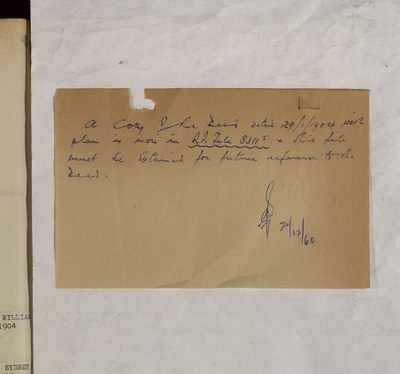 A Copy of the Deed dated 29/1/1904 with
plan is now in & this file
must be obtained for future reference to the
Deed.
21/12/60
WILLIAM
1904
SYDNEY